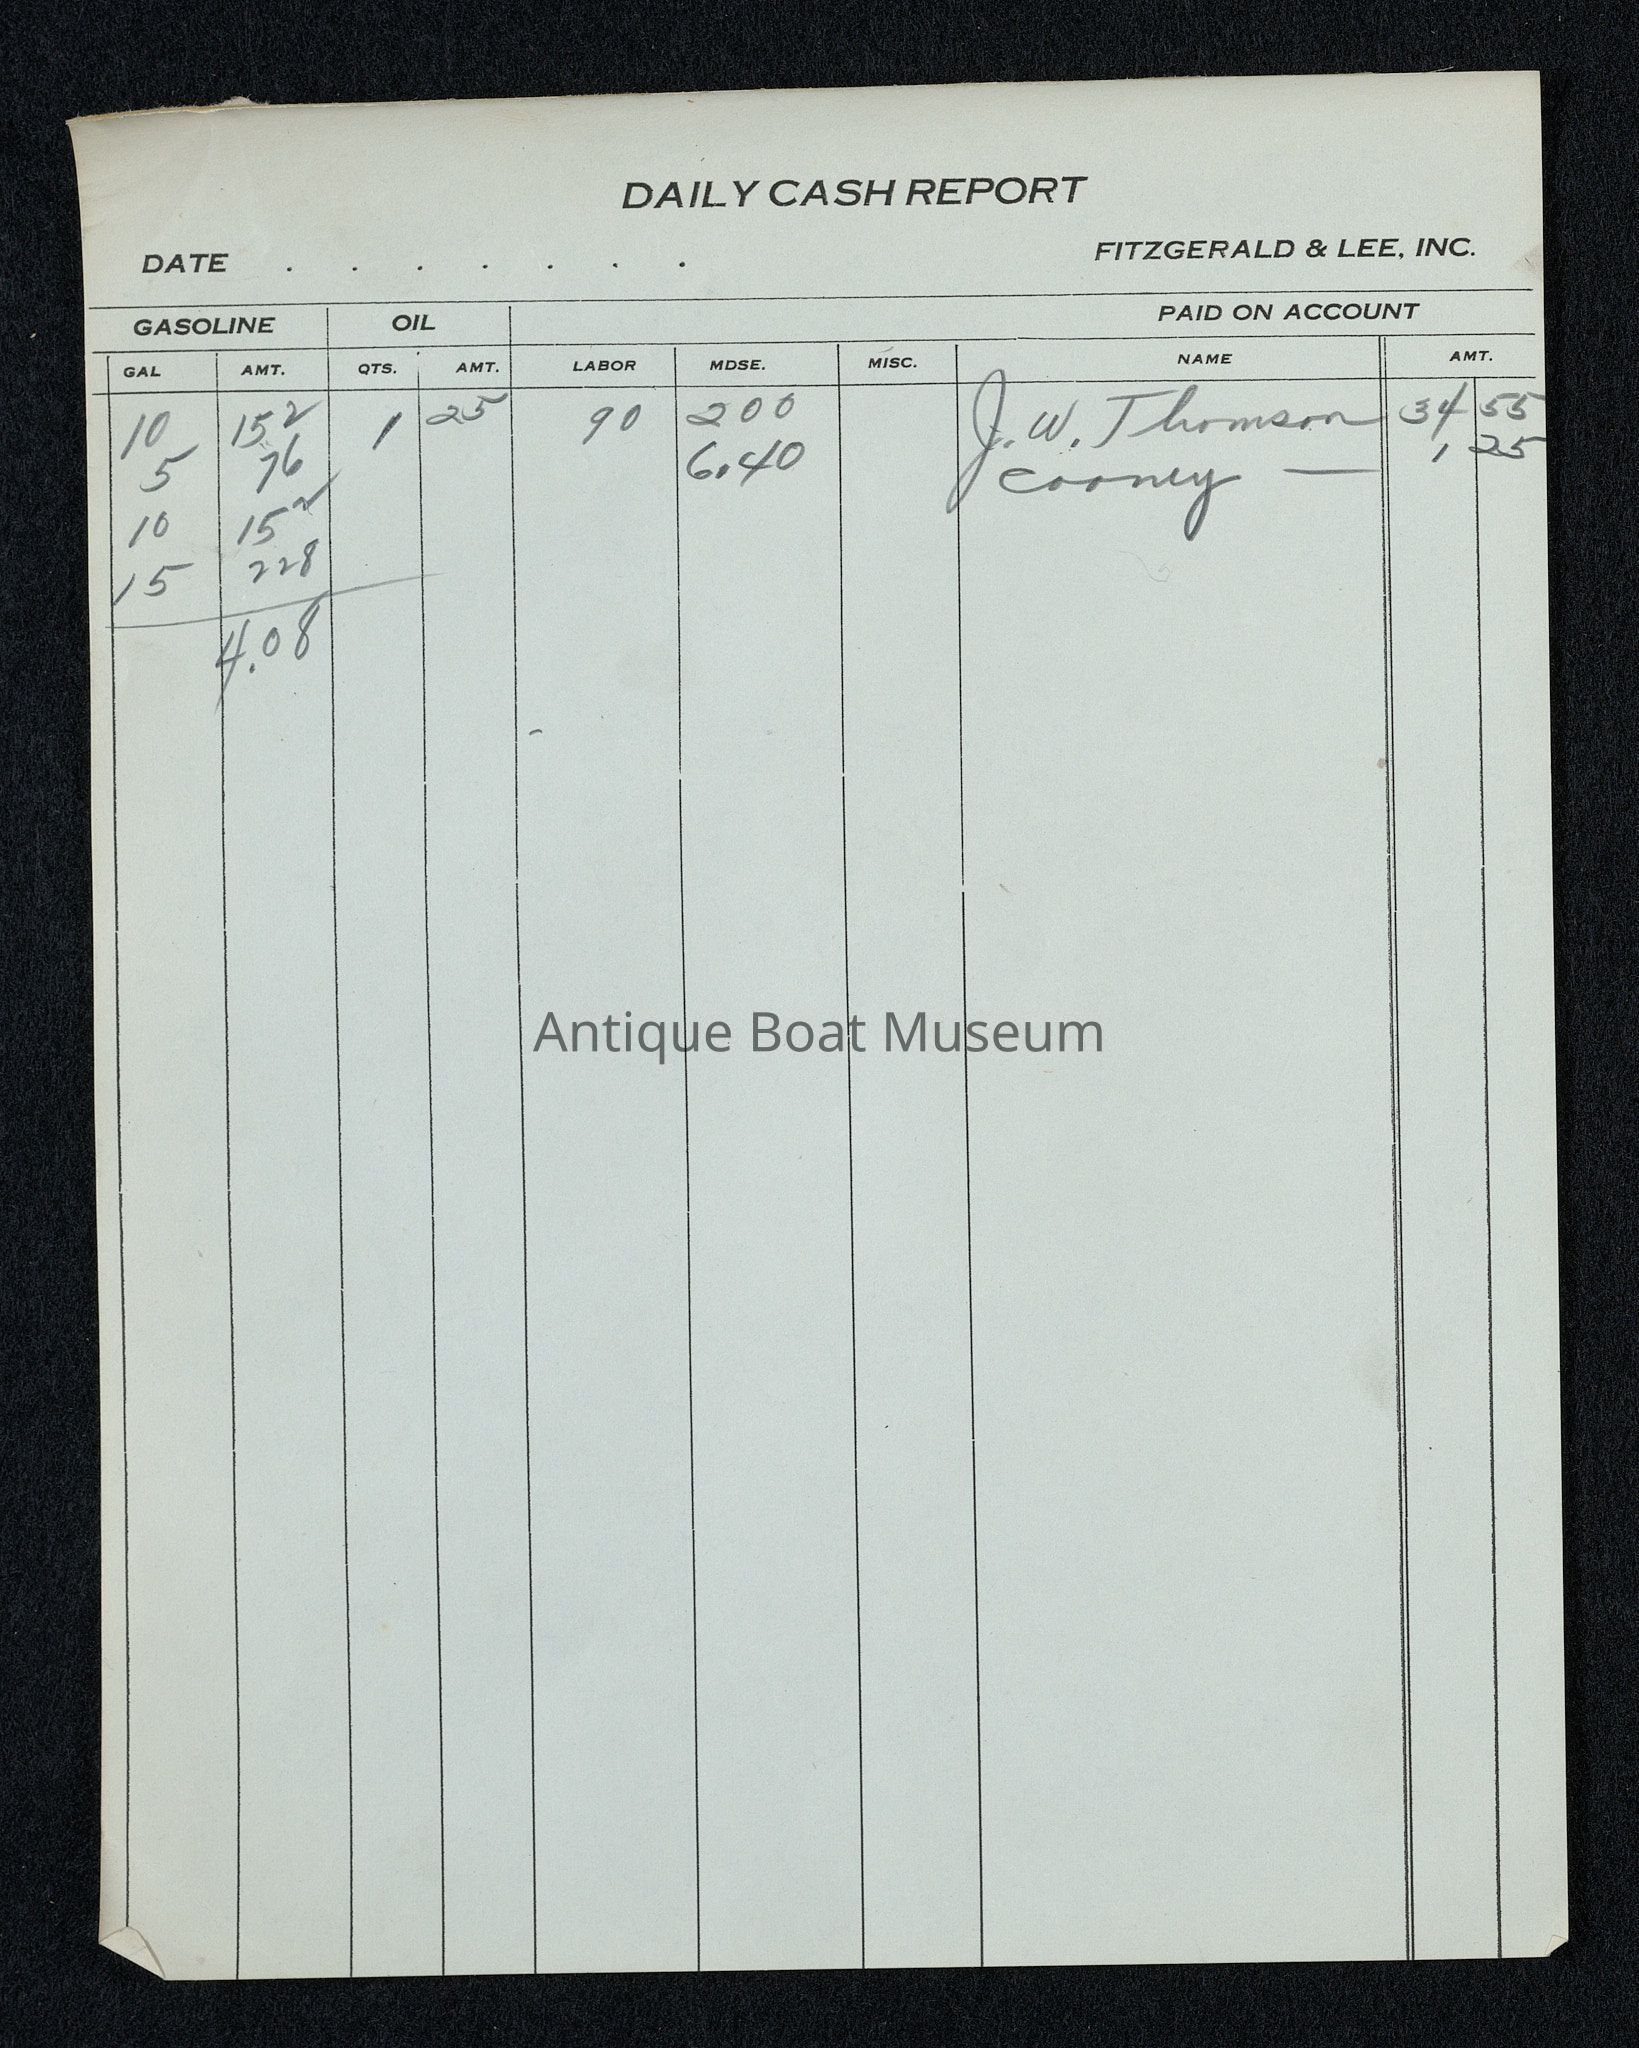 DAILY CASH REPORT
DATE . . . . . . .
FITZGERALD & LEE, INC.
GASOLINE OIL PAID ON ACCOUNT
GAL AMT. QTS. AMT. LABOR MDSE. MISC. NAME AMT.
10 152 1 25 90 200 J. W. Thomson 34 55
5 76 6.40 Cooney — 1 25
10 152
15 228
4.08
Antique Boat Museum